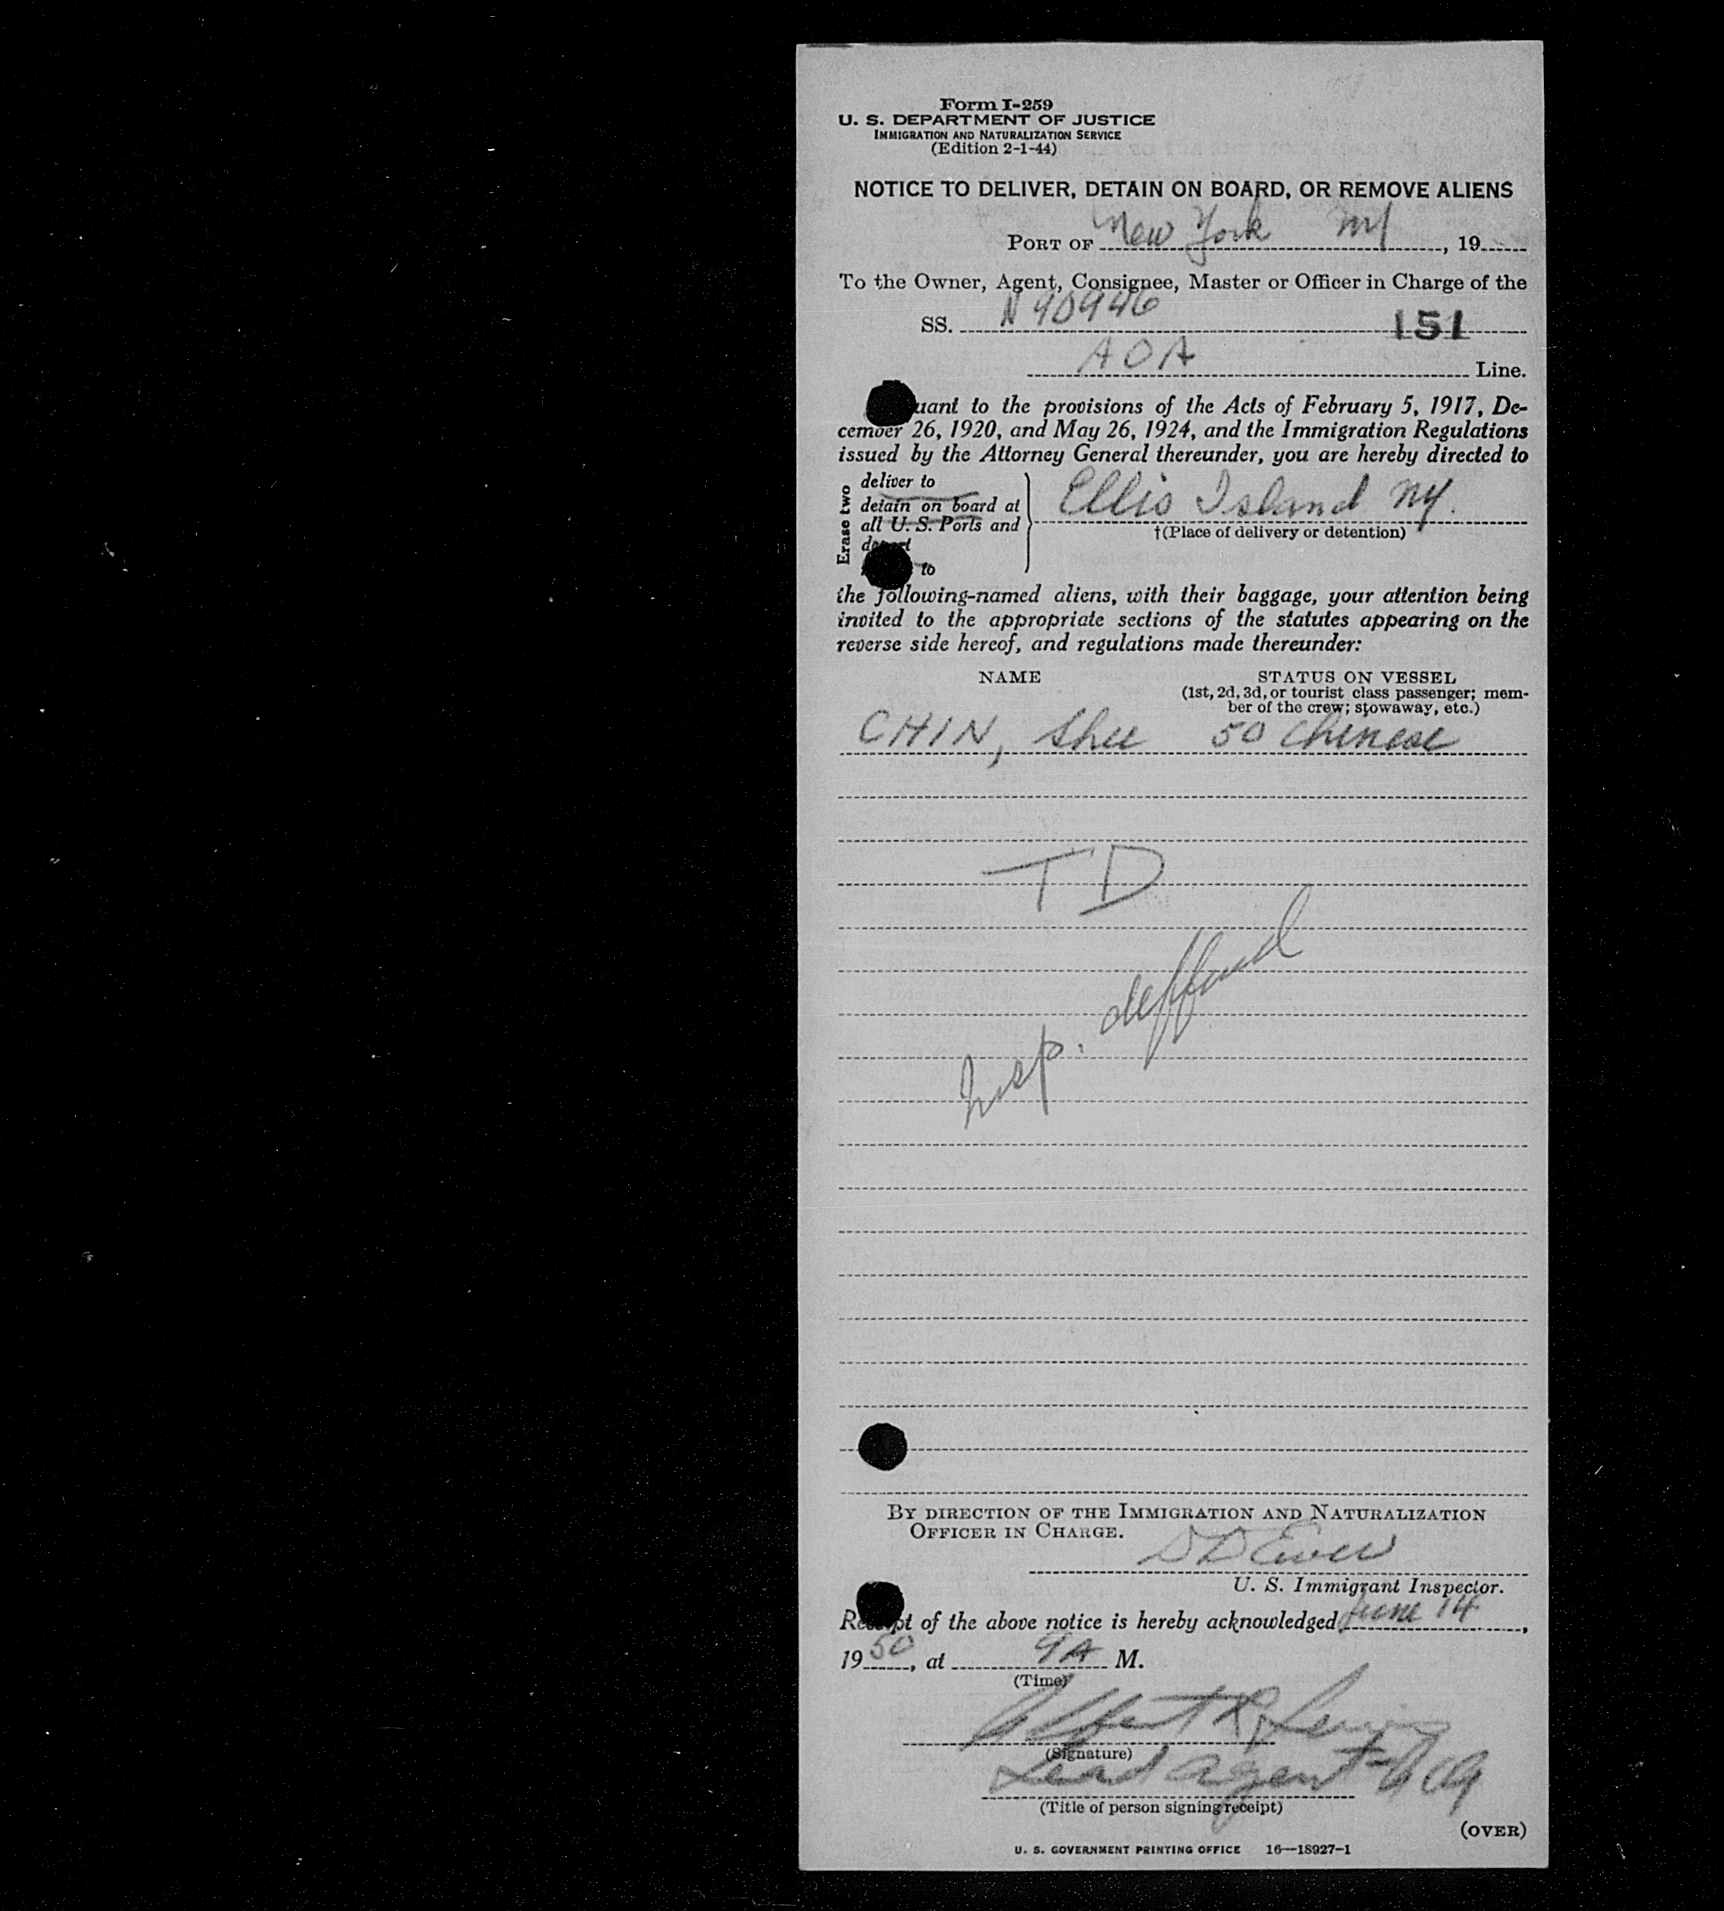 Form I-259
U. S. DEPARTMENT OF JUSTICE
IMMIGRATION AND NATURALIZATION SERVICE
(Edition 2-1-44)
NOTICE TO DELIVER, DETAIN ON BOARD, OR REMOVE ALIENS
PORT OF New York NY, 19
To the Owner, Agent, Consignee, Master or Officer in Charge of the
SS. N 90946 151
AOA Line.
uant to the provisions of the Acts of February 5, 1917, De-
cember 26, 1920, and May 26, 1924, and the Immigration Regulations
issued by the Attorney General thereunder, you are hereby directed to
Erase two
deliver to
detain on board at
all U. S. Ports and
deport
to
Ellis Island NY.
†(Place of delivery or detention)
the following-named aliens, with their baggage, your attention being
invited to the appropriate sections of the statutes appearing on the
reverse side hereof, and regulations made thereunder:
NAME STATUS ON VESSEL
(1st, 2d, 3d, or tourist class passenger; mem-
ber of the crew; stowaway, etc.)
CHIN, Shee 50 Chinese
TD
Insp. deffund
BY DIRECTION OF THE IMMIGRATION AND NATURALIZATION
OFFICER IN CHARGE.
U. S. Immigrant Inspector.
Receipt of the above notice is hereby acknowledged June 14,
19 50, at 9 A M.
(Time)
Albert R.
(Signature)
Lead Agent-
(Title of person signing receipt)
(OVER)
U. S. GOVERNMENT PRINTING OFFICE 16—18927-1